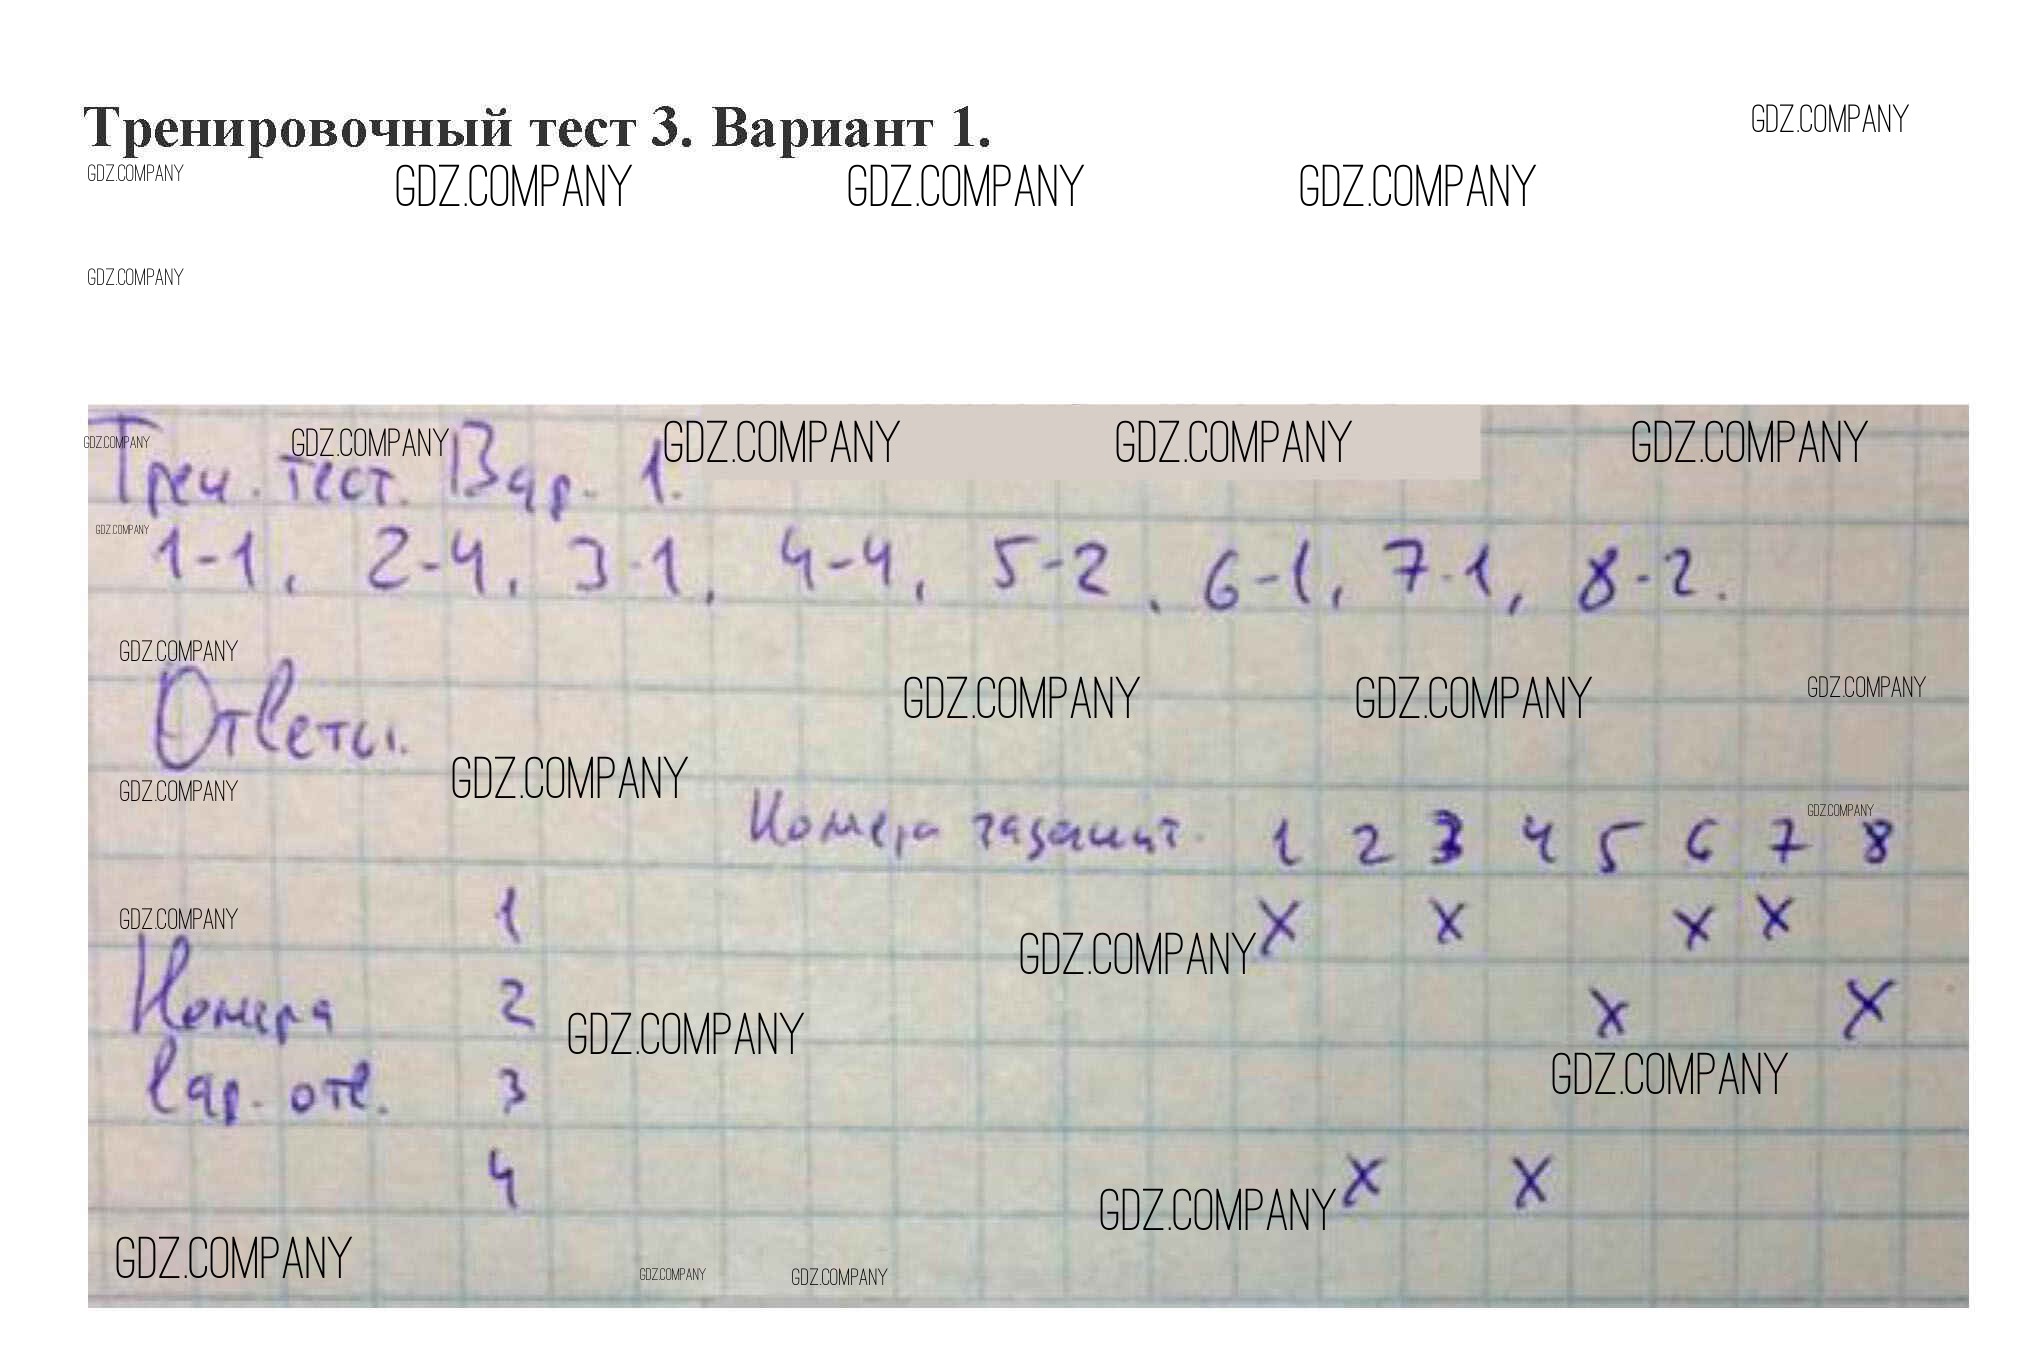 Тренировочный тест 3. Вариант 1.
GDZ.COMPANY
GDZ.COMPANY GDZ.COMPANY GDZ.COMPANY GDZ.COMPANY
GDZ.COMPANY
GDZ.COMPANY GDZ.COMPANY GDZ.COMPANY GDZ.COMPANY GDZ.COMPANY
Трен. тест. Вар. 1.
GDZ.COMPANY
1-1, 2-4, 3-1, 4-4, 5-2, 6-1, 7-1, 8-2.
GDZ.COMPANY
GDZ.COMPANY GDZ.COMPANY GDZ.COMPANY
Ответы.
GDZ.COMPANY GDZ.COMPANY
GDZ.COMPANY
Номера 1 2 3 4 5 6 7 8
GDZ.COMPANY 1 x x x x
GDZ.COMPANY
Номера 2 x x
GDZ.COMPANY
GDZ.COMPANY
вар. отв. 3
4 x x
GDZ.COMPANY
GDZ.COMPANY GDZ.COMPANY GDZ.COMPANY